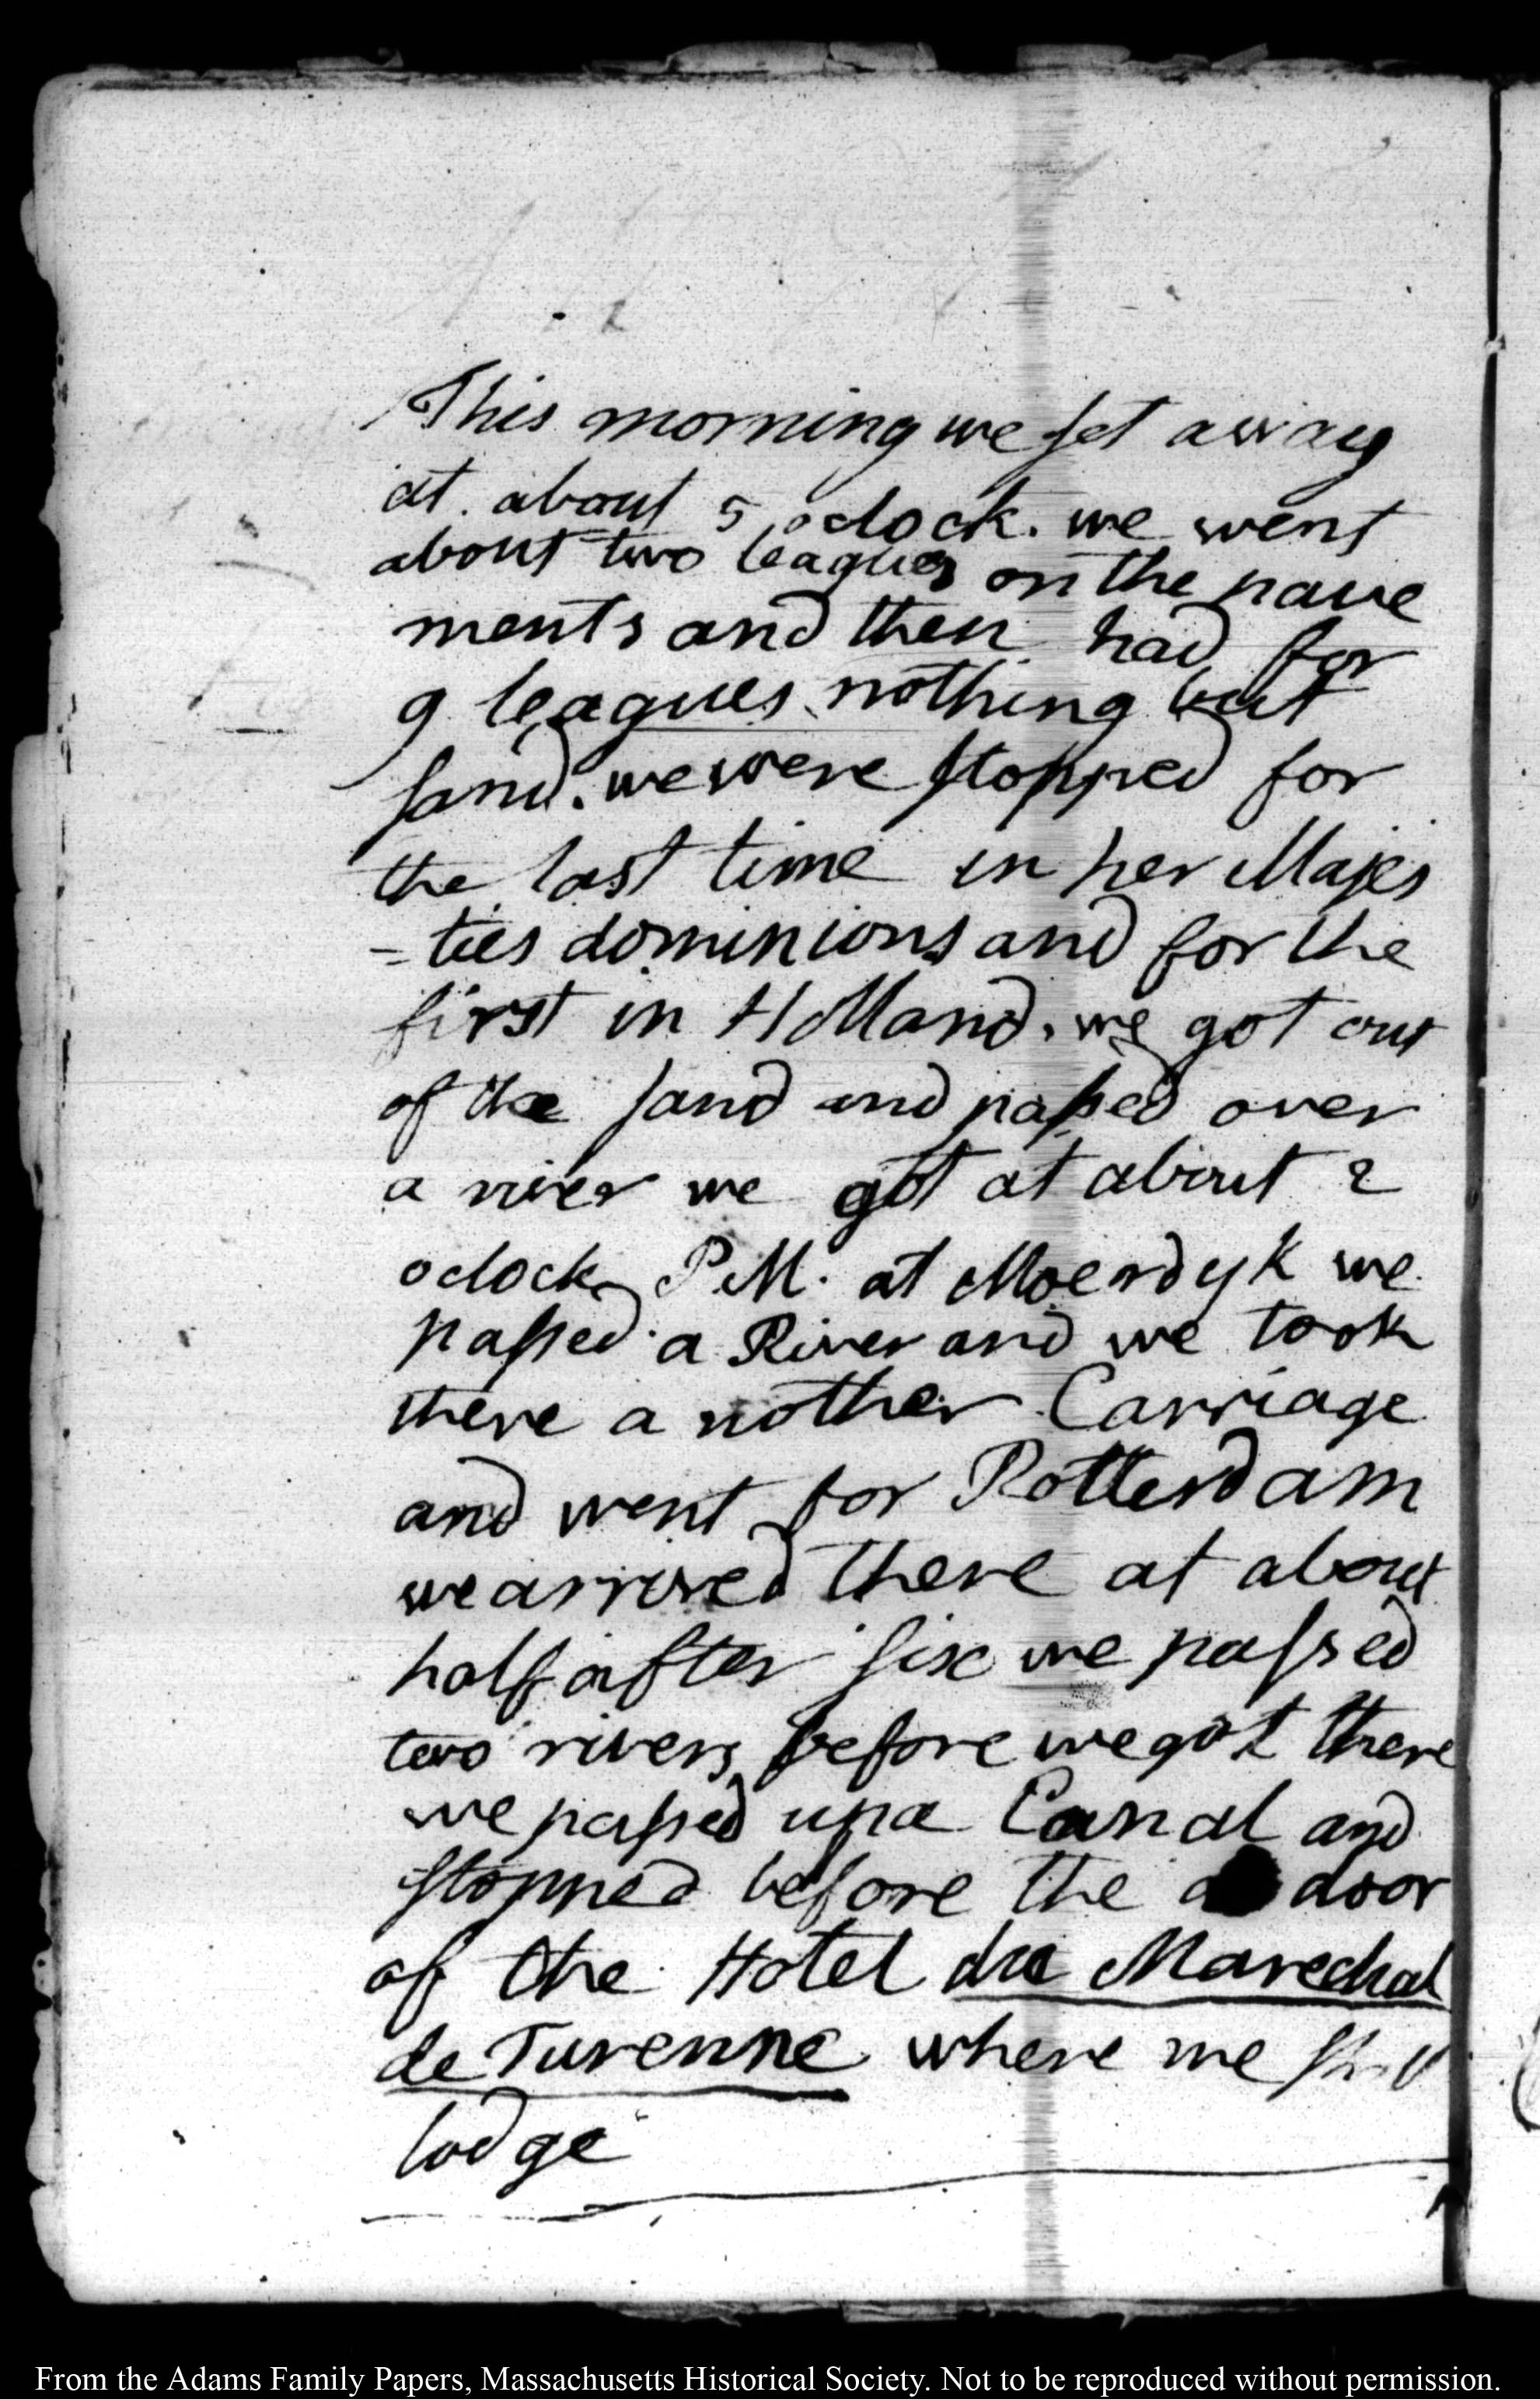 This morning we set away
at about 5 oclock. we went
about two leagues on the pave
ments and then had for
9 leagues nothing but
sand. we were stopped for
the last time in her Majes
=ties dominions and for the
first in Holland. we got out
of the sand and passed over
a river we got at about 2
oclock P.M. at Moerdyk we
passed a River and we took
there a nother Carriage
and went for Rotterdam
we arrived there at about
half after six we passed
two rivers before we got there
we passed up a Canal and
stopped before the door
of the Hotel du Marechal
de Turenne where we shall
lodge
From the Adams Family Papers, Massachusetts Historical Society. Not to be reproduced without permission.